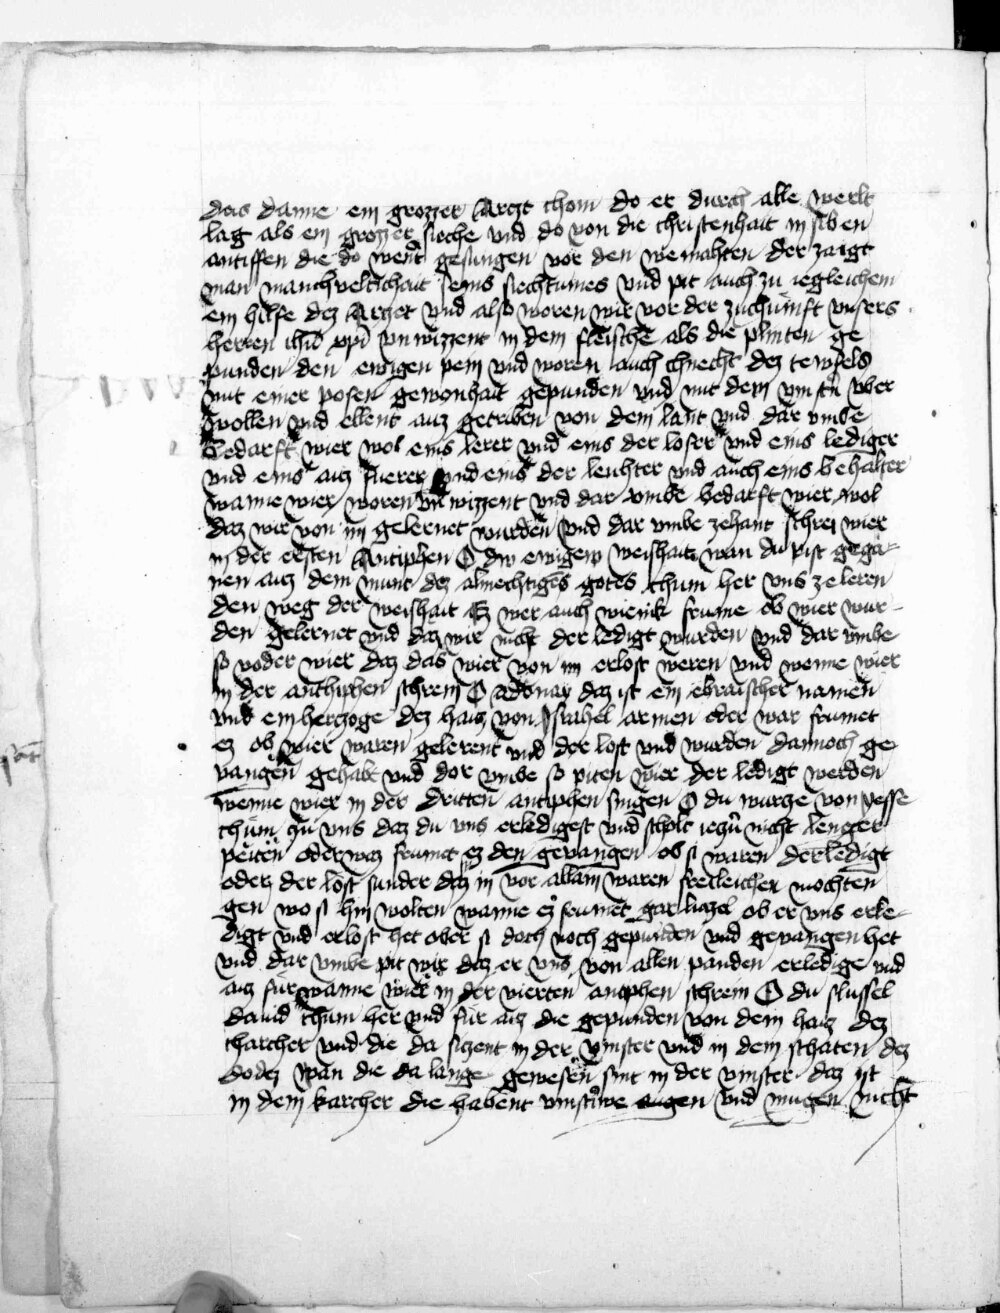 das danne ein grozzer Arczt chom do er durch alle werlt
lag als ein grozzer sieche vnd do von die christenhait in siben
antiffen die do went gesungen vor den weinahten der zaigt
man manchveltichait seins siechtumes vnd pit auch zu iegleichem
ein hilfe dez Arczet vnd also woren wir vor der zuchunft vnsers
herren ihu xpi vnwizzent in dem fleische als die plinten ge
punden den ewigen pein vnd woren auch chnecht dez tewfels
mit einer posen gewonhait gepunden vnd mit dem vinstn vber
wollen vnd ellent auz getriben von dem lant vnd dar vmbe
bedarft wier wol eins lerer vnd eins der loser vnd eins lediger
vnd eins auz fuerer vnd eins der leuhter vnd auch eins behalter
wanne wier woren vnwizzent vnd dar vmbe bedarft wier wol
daz wir von im gelernet wurden vnd dar vmbe zehant schrei wier
in der ersten Antiphen O diw ewigew weishait wan du pist gegan
nen auz dem munt dez almechtiges gotes chum her vns ze leren
den weg der weishait Ez wer auch wienik frume ob wier wur
den gelernet vnd daz wir nicht der ledigt wurden vnd dar vmbe
so voder wier daz das wier von im erlost weren vnd wenne wier
in der anthiphen schrein O adonay daz ist ein ebraischer namen
vnd ein herczoge dez hauz von Israhel armen oder war frumet
ez ob wier waren gelerent vnd der lost vnd wurden dannoch ge
vangen gehabt vnd dor vmbe so piten wier der ledigt werden
wenne wier in der dritten antiphen singen O du wurze von yesse
chum zu vns daz du vns erledigest vnd scholt iezu nicht lenger
peiten oder waz frumet ez den gevangen ob si waren derledigt
oder der lost sunder daz in vor allam waren freileichen mochten
gen wo si hin wolten wanne ez frumet gar luczel ob er vns erle
digt vnd erlost het ober si doch noch gepunden vnd gevangen het
vnd dar vmbe pit wir daz er vns von allen panden erledige vnd
auz fur wanne wier in der vierten antiphen schrein O du slussel
dauid chum her vnd fur auz die gepunden von dem hauz dez
charcher vnd die da siczent in der vinster vnd in dem schaten dez
dodez wan die da lange gewesen sint in der vinster daz ist
in dem karcher die habent vinstrwe augen vnd mugen nicht